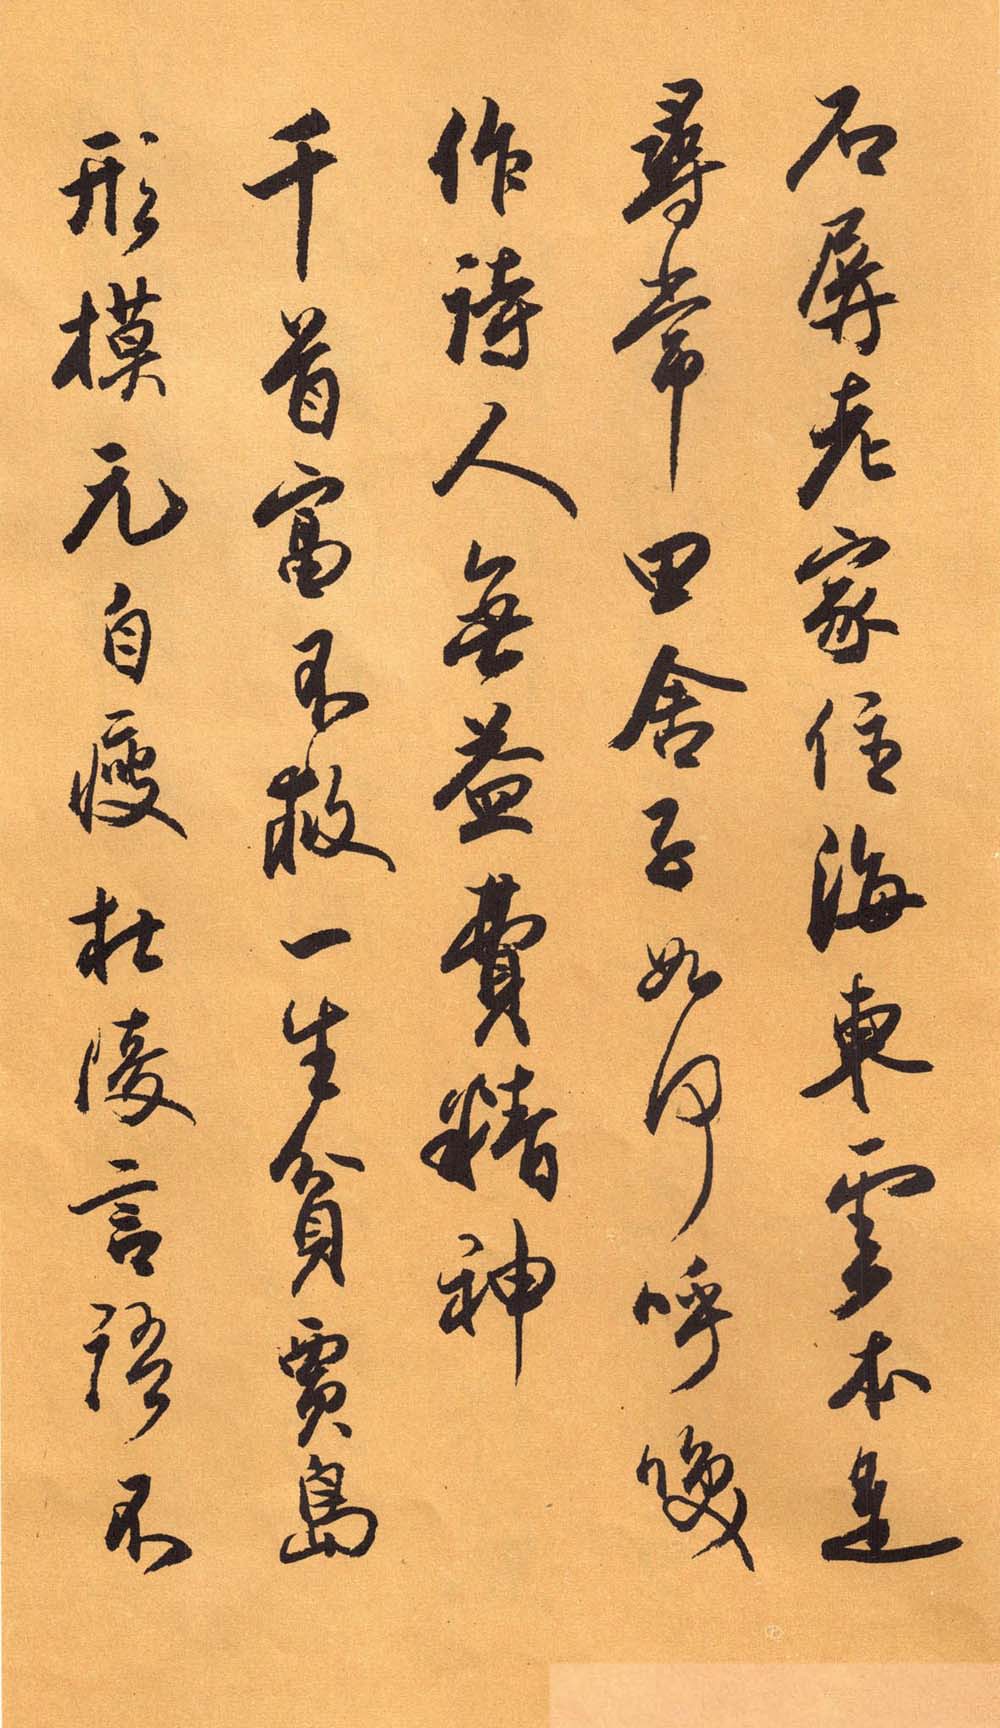 石屏老家住海東雲本是
尋常田舍子如何呼喚
作詩人無益費精神
千首富不救一生貧賈島
形模元自瘦杜陵言語不